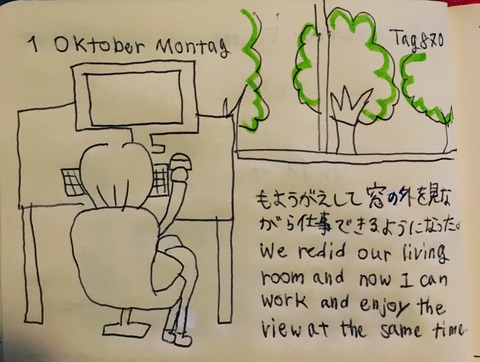 1 Oktober Montag
Tag 870
もようがえして窓の外を見な
がら仕事できるようになった。
We redid our living
room and now I can
work and enjoy the
view at the same time.